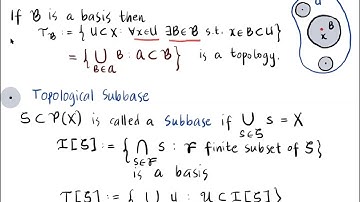 If B is a basis then
τ_B := {U⊂X : ∀x∈U ∃B∈B s.t. x∈B⊂U}
= {⋃_{B∈a} B : a⊂B} is a topology.
B
x
Topological Subbase
S⊂P(X) is called a subbase if ⋃_{S∈S} S = X
I[S] := {⋂_{S∈F} S : F finite subset of S}
is a basis
T[S] := {⋃ U : U⊂I[S]}